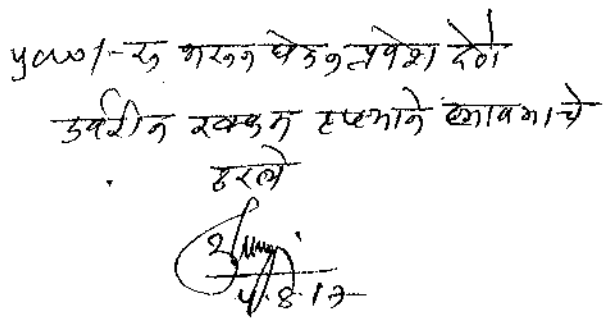 ५०००/- रु भरून घेऊन प्रवेश देणे
उर्वरीत रक्कम हप्त्याने घ्यावयाचे
ठरले
५.8.17